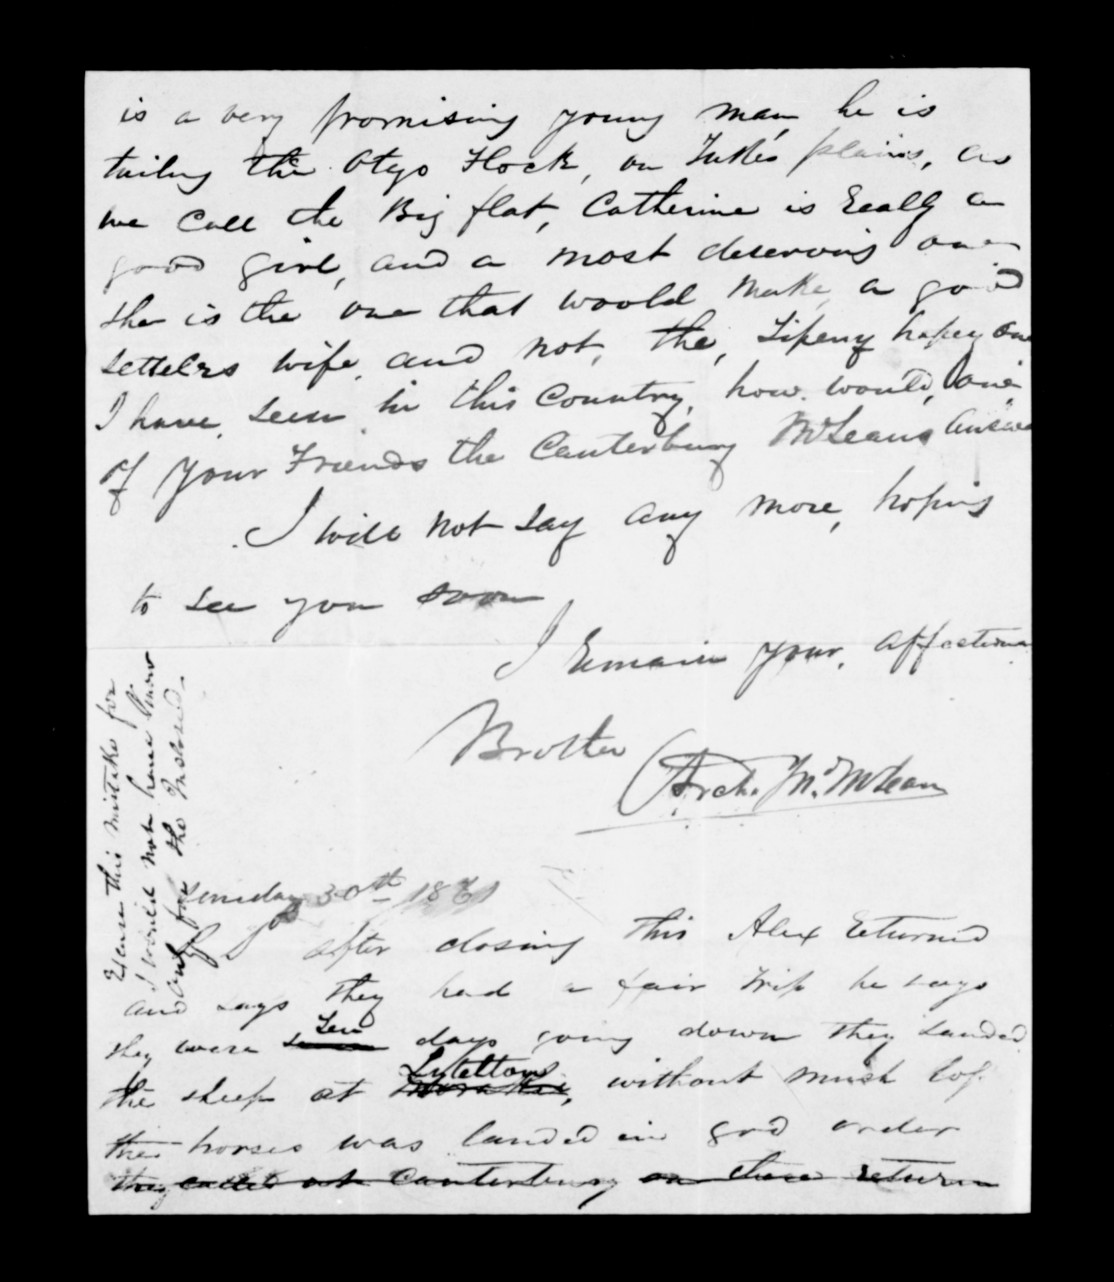 is a very promising young man, he is
tailing the Otago Flock, on Tuke's plains, as
we Call the Big flat, Catherine is Really a
good girl, and a most deserving one
she is the one that would make, a good
settlers wife, and not, the, hapeny one
I have, seen in this Country, how would, one
of your Friends the Canterbury McLeans answer
I will not say any more, hoping
to see you soon
I Remain your, affectiona
Brother
Arch. Jn. McLean
Excuse this mistake for
I would not have know
only for the Inclosed.
30th 1861
after closing this Alex Returned
and says they had a fair trip he says
they were ten days going down they landed
the sheep at Lyteltown, without much loss
their horses was landed in good order
they called at Canterbury on there return